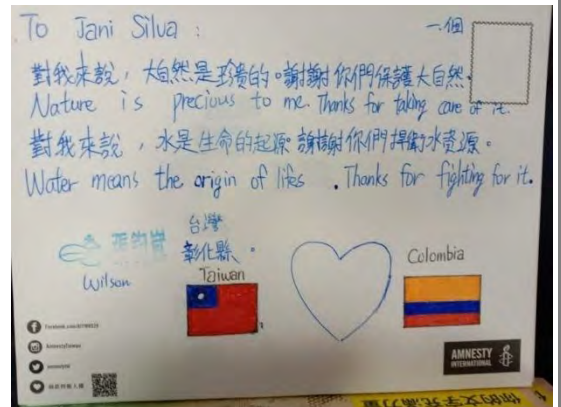 To Jani Silva :
一個
對我來說，大自然是珍貴的。謝謝你們保護大自然。
Nature is precious to me. Thanks for taking care of it.
對我來說，水是生命的起源。謝謝你們捍衛水資源。
Water means the origin of lifes . Thanks for fighting for it.
台灣
彰化縣。
Wilson
Taiwan
Colombia
AmnestyTaiwan
AMNESTY
INTERNATIONAL
你的文字充滿力量